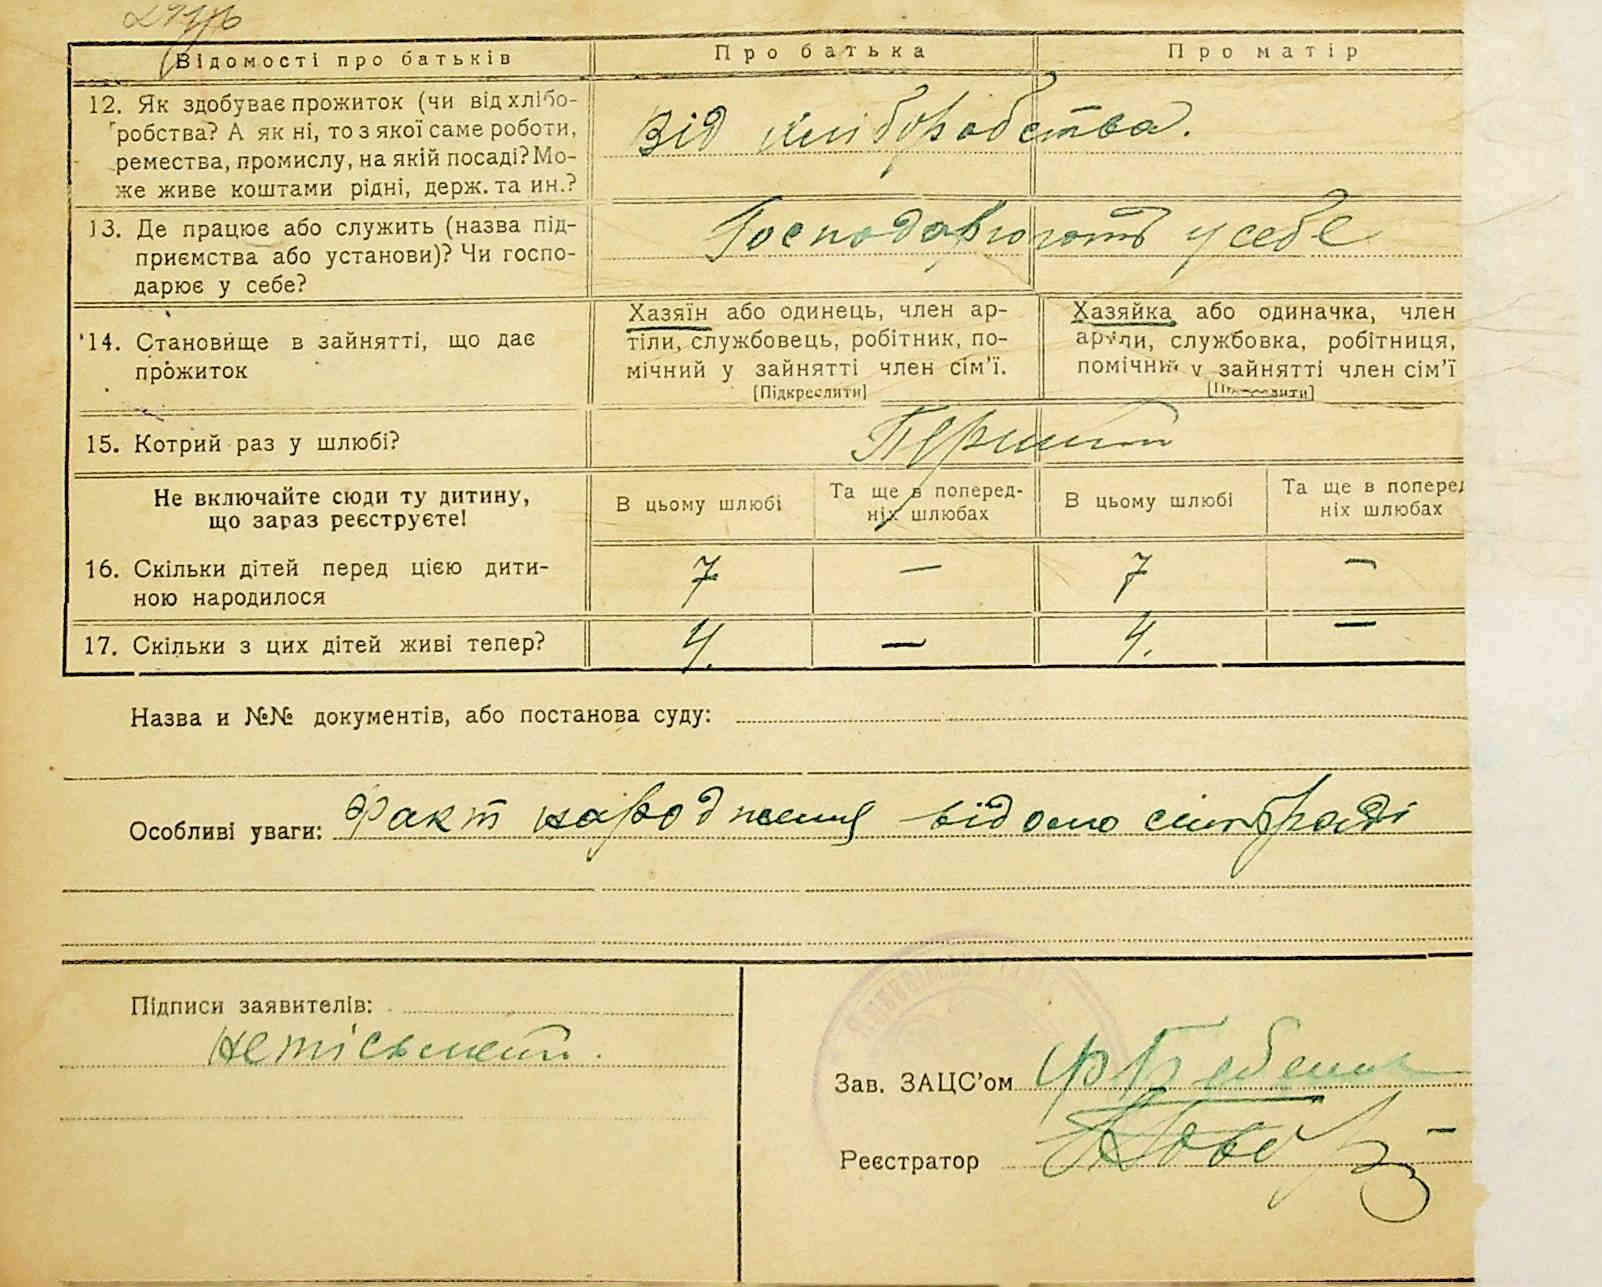 Відомості про батьків
Про батька
Про матір
12. Як здобуває прожиток (чи від хлібо-
робства? А як ні, то з якої саме роботи,
ремества, промислу, на якій посаді? Мо-
же живе коштами рідні, держ. та ин.?
Від хліборобства.
13. Де працює або служить (назва під-
приємства або установи)? Чи госпо-
дарює у себе?
Господарюють у себе
14. Становище в зайнятті, що дає
прожиток
Хазяїн або одинець, член ар-
тіли, службовець, робітник, по-
мічний у зайнятті член сім'ї.
[Підкреслити]
Хазяйка або одиначка, член
артіли, службовка, робітниця,
помічний у зайнятті член сім'ї
[Підкреслити]
15. Котрий раз у шлюбі?
Перший
Не включайте сюди ту дитину,
що зараз реєструєте!
В цьому шлюбі
Та ще в поперед-
ніх шлюбах
В цьому шлюбі
Та ще в поперед
ніх шлюбах
16. Скільки дітей перед цією дити-
ною народилося
7 — 7 —
17. Скільки з цих дітей живі тепер?
4. — 4. —
Назва и №№ документів, або постанова суду:
Особливі уваги: Факт народження відомо сільраді
Підписи заявителів:
неписьмен.
Зав. ЗАЦС'ом
Реєстратор